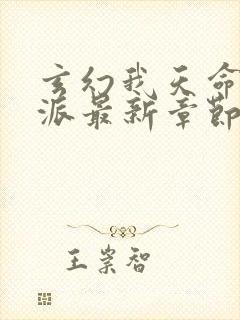 玄幻我天命
派最新章節
王崇智